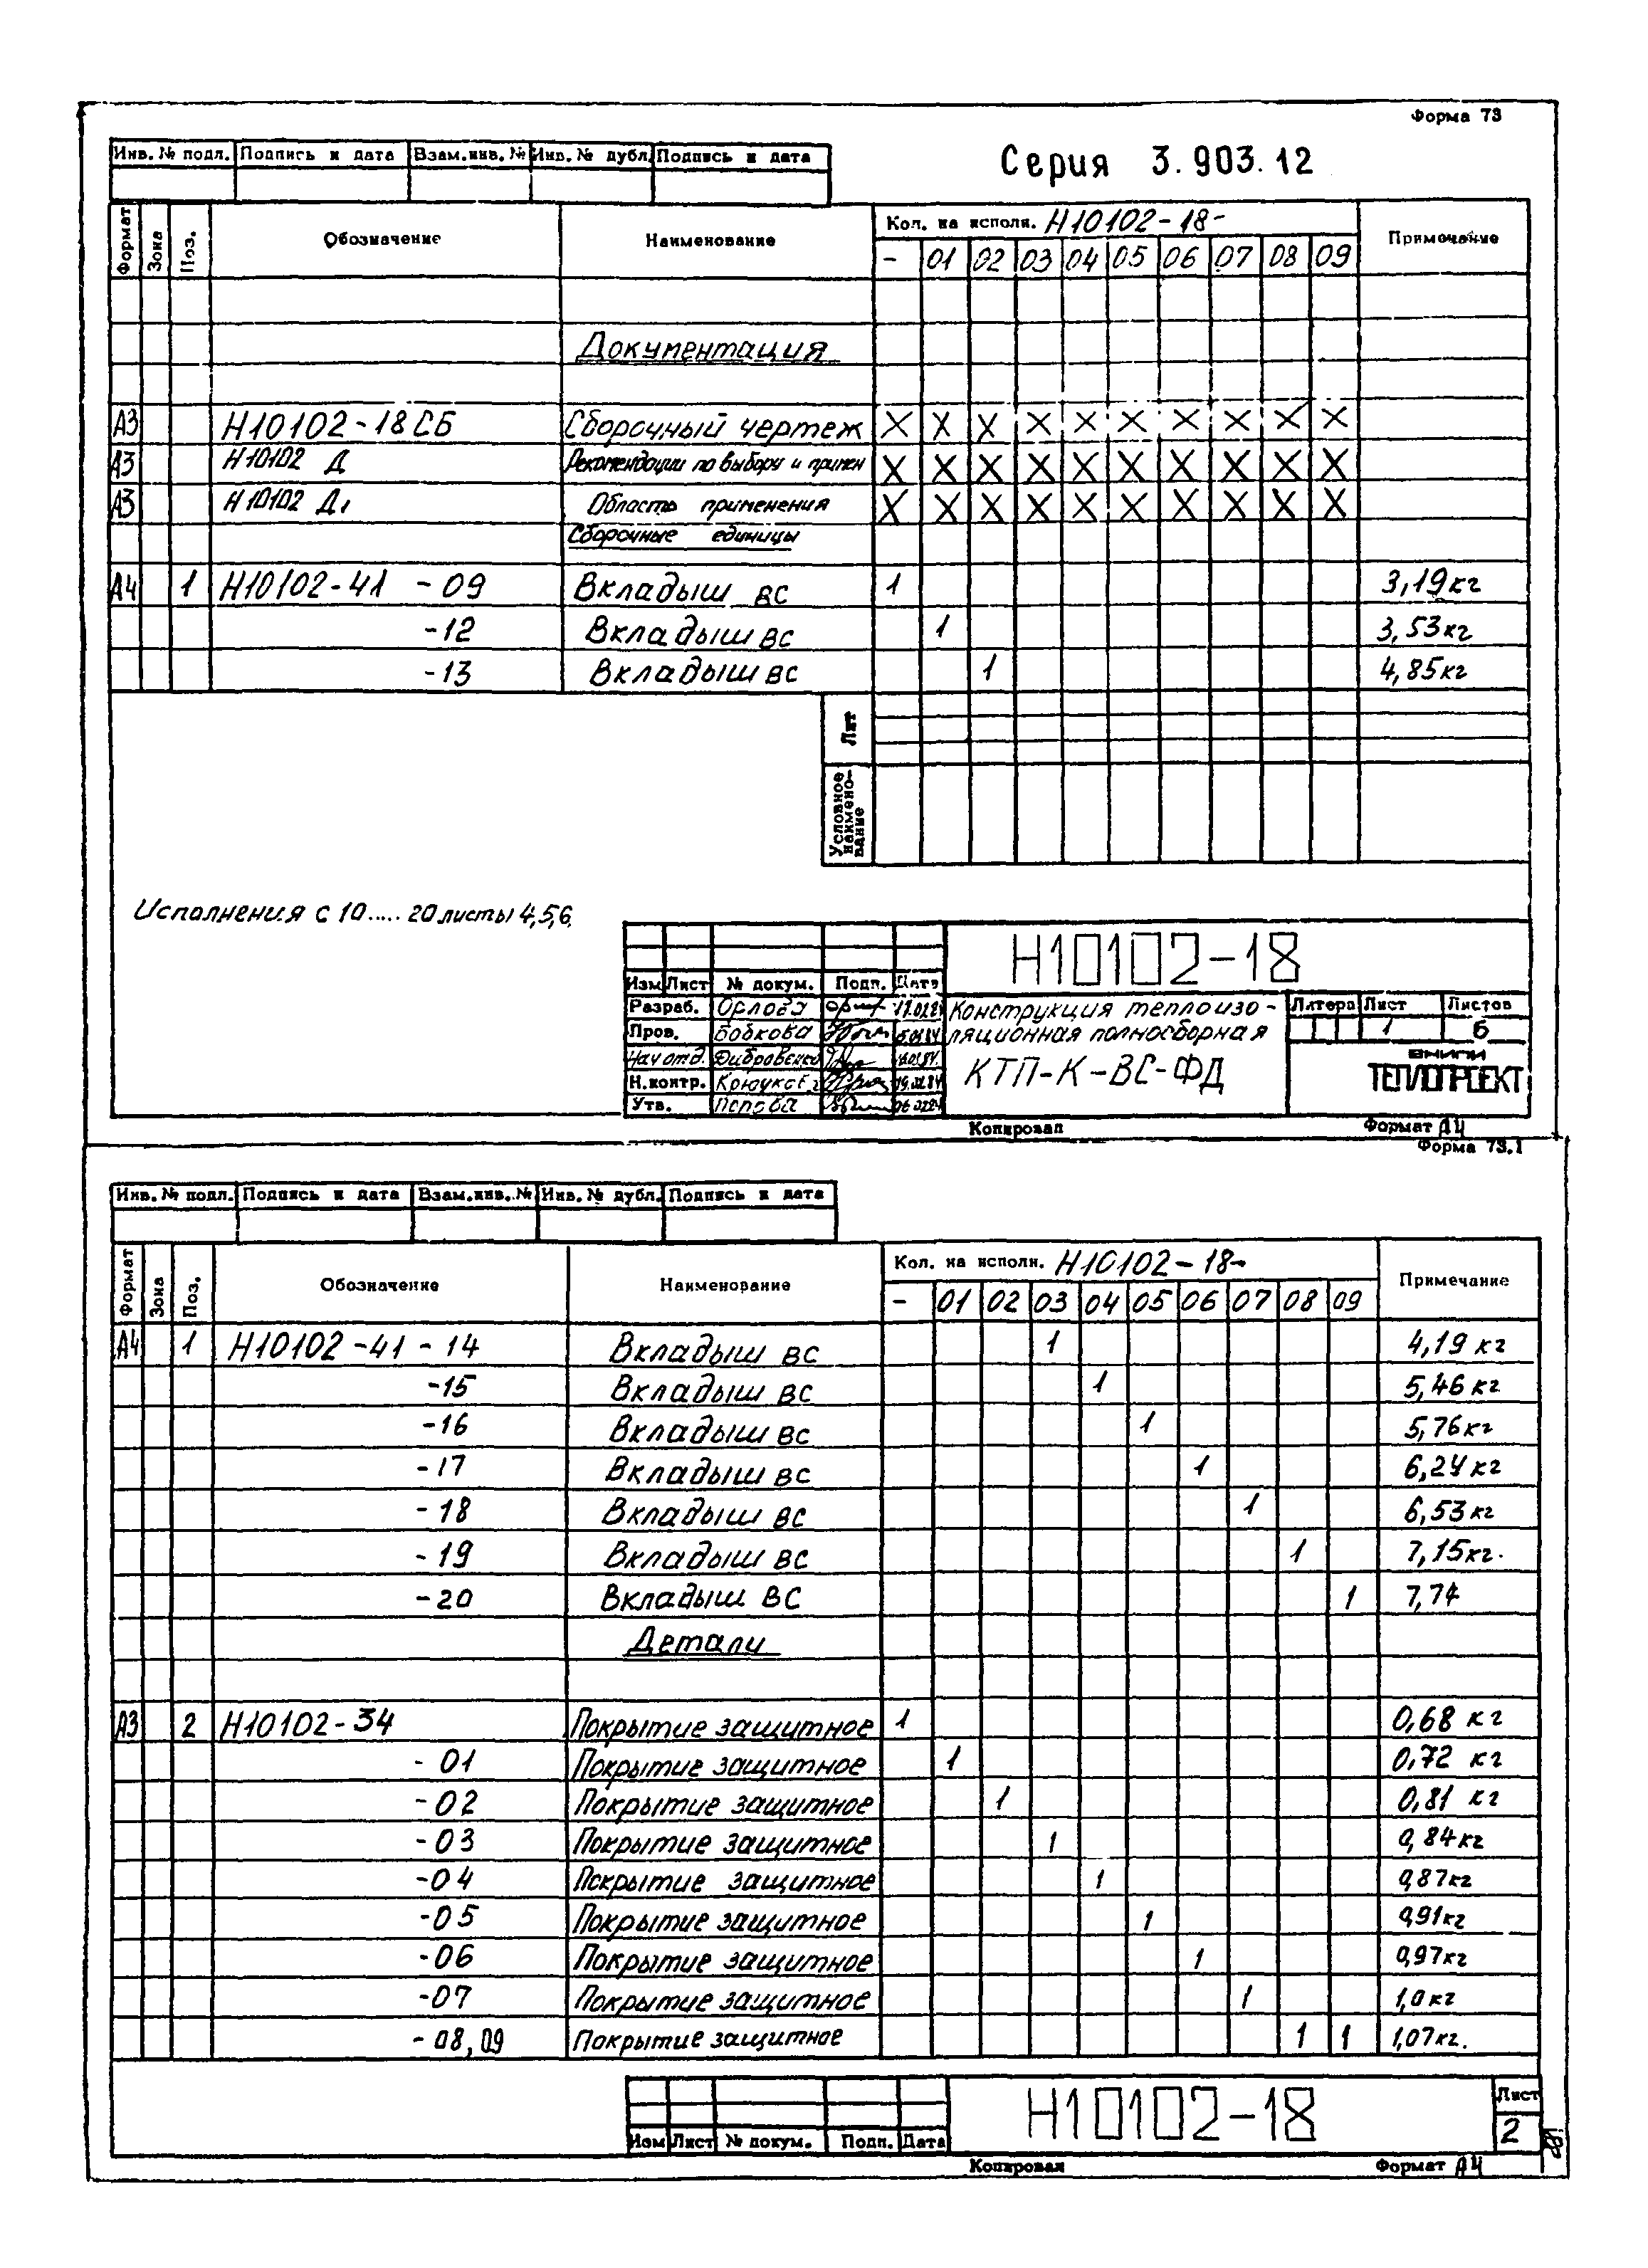 Форма 73
Инв. № подл. Подпись и дата Взам.инв. № Инв. № дубл. Подпись и дата
Серия 3.903.12
Формат Зона Поз. Обозначение Наименование Кол. на исполн. Н10102-18- Примечание
- 01 02 03 04 05 06 07 08 09
Документация
А3 Н10102-18СБ Сборочный чертеж X X X X X X X X X X
А3 Н10102 Д Рекомендации по выбору и примен X X X X X X X X X X
А3 Н10102 Д1 Область применения X X X X X X X X X X
Сборочные единицы
А4 1 Н10102-41 -09 Вкладыш ВС 1 3,19кг
-12 Вкладыш ВС 1 3,53кг
-13 Вкладыш ВС 1 4,85кг
Лит
Условное наимено- вание
Исполнения с 10.....20 листы 4,5,6.
Н10102-18
Изм Лист № докум. Подп. Дата
Разраб. Орлова
Пров. Бобкова
Нач отд.
Н.контр.
Утв. Попова
Конструкция теплоизо-
ляционная полносборная
КТП-К-ВС-ФД
Литера Лист Листов
1 6
ВНИПИ
ТЕПЛОПРОЕКТ
Копировал Формат А4
Форма 73.1
Инв. № подл. Подпись и дата Взам.инв. № Инв. № дубл. Подпись и дата
Формат Зона Поз. Обозначение Наименование Кол. на исполн. Н10102-18- Примечание
- 01 02 03 04 05 06 07 08 09
А4 1 Н10102-41-14 Вкладыш ВС 1 4,19 кг
-15 Вкладыш ВС 1 5,46 кг
-16 Вкладыш ВС 1 5,76кг
-17 Вкладыш ВС 1 6,24 кг
-18 Вкладыш ВС 1 6,53 кг
-19 Вкладыш ВС 1 7,15кг.
-20 Вкладыш ВС 1 7,74
Детали
А3 2 Н10102-34 Покрытие защитное 1 0,68 кг
-01 Покрытие защитное 1 0,72 кг
-02 Покрытие защитное 1 0,81 кг
-03 Покрытие защитное 1 0,84кг
-04 Покрытие защитное 1 0,87кг
-05 Покрытие защитное 1 0,91кг
-06 Покрытие защитное 1 0,97кг
-07 Покрытие защитное 1 1,0кг
-08,09 Покрытие защитное 1 1 1,07кг.
Изм Лист № докум. Подп. Дата
Н10102-18
Лист
2
Копировал Формат А4